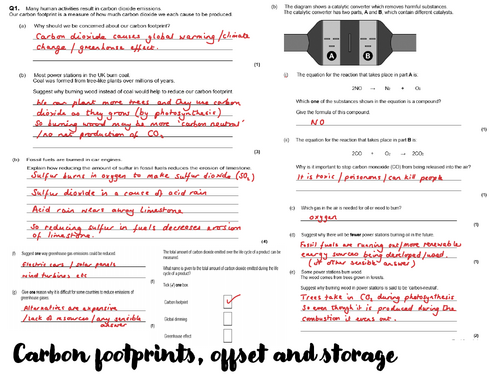 Q1. Many human activities result in carbon dioxide emissions.
Our carbon footprint is a measure of how much carbon dioxide we each cause to be produced.
(a) Why should we be concerned about our carbon footprint?
Carbon dioxide causes global warming / climate
change / greenhouse effect.
(1)
(b) Most power stations in the UK burn coal.
Coal was formed from tree-like plants over millions of years.
Suggest why burning wood instead of coal would help to reduce our carbon footprint.
We can plant more trees and they use carbon
dioxide as they grow (by photosynthesis)
So burning wood may be more 'carbon neutral'
/ no net production of CO2
(3)
(b) Fossil fuels are burned in car engines.
Explain how reducing the amount of sulfur in fossil fuels reduces the erosion of limestone.
Sulfur burns in oxygen to make sulfur dioxide (SO2)
Sulfur dioxide is a cause of acid rain
Acid rain wears away limestone
So reducing sulfur in fuels decreases erosion
of limestone.
(4)
(f) Suggest one way greenhouse gas emissions could be reduced.
Electric cars / solar panels
wind turbines etc
(g) Give one reason why it is difficult for some countries to reduce emissions of
greenhouse gases.
Alternatives are expensive
/ lack of resources / any sensible
answer
The total amount of carbon dioxide emitted over the life cycle of a product can be
measured.
What name is given to the total amount of carbon dioxide emitted during the life
cycle of a product?
Tick (✓) one box.
Carbon footprint ✓
Global dimming
Greenhouse effect
(b) The diagram shows a catalytic converter which removes harmful substances.
The catalytic converter has two parts, A and B, which contain different catalysts.
A B
(i) The equation for the reaction that takes place in part A is:
2NO → N2 + O2
Which one of the substances shown in the equation is a compound?
Give the formula of this compound.
NO
(1)
The equation for the reaction that takes place in part B is:
2CO + O2 → 2CO2
Why is it important to stop carbon monoxide (CO) from being released into the air?
It is toxic / poisonous / can kill people
(1)
(c) Which gas in the air is needed for all or wood to burn?
oxygen
(1)
(d) Suggest why there will be fewer power stations burning oil in the future.
Fossil fuels are running out / more renewable
energy sources being developed / wood.
(or other sensible answer)
(1)
(e) Some power stations burn wood.
The wood comes from trees grown in forests.
Suggest why burning wood in power stations is said to be carbon-neutral.
Trees take in CO2 during photosynthesis
So even though it is produced during the
combustion it evens out.
(2)
Carbon footprints, offset and storage